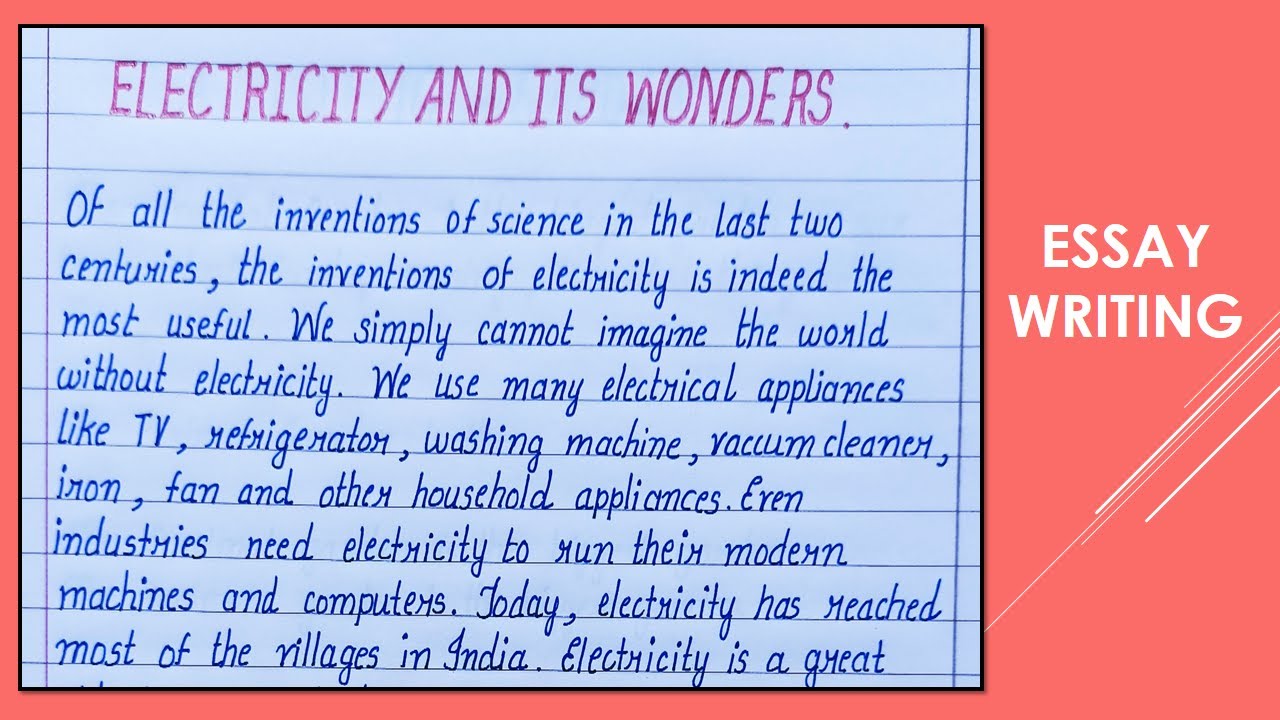 ELECTRICITY AND ITS WONDERS.
Of all the inventions of science in the last two
centuries, the inventions of electricity is indeed the
most useful. We simply cannot imagine the world
without electricity. We use many electrical appliances
like TV, refrigerator, washing machine, vaccum cleaner,
iron, fan and other household appliances. Even
industries need electricity to run their modern
machines and computers. Today, electricity has reached
most of the villages in India. Electricity is a great
ESSAY
WRITING